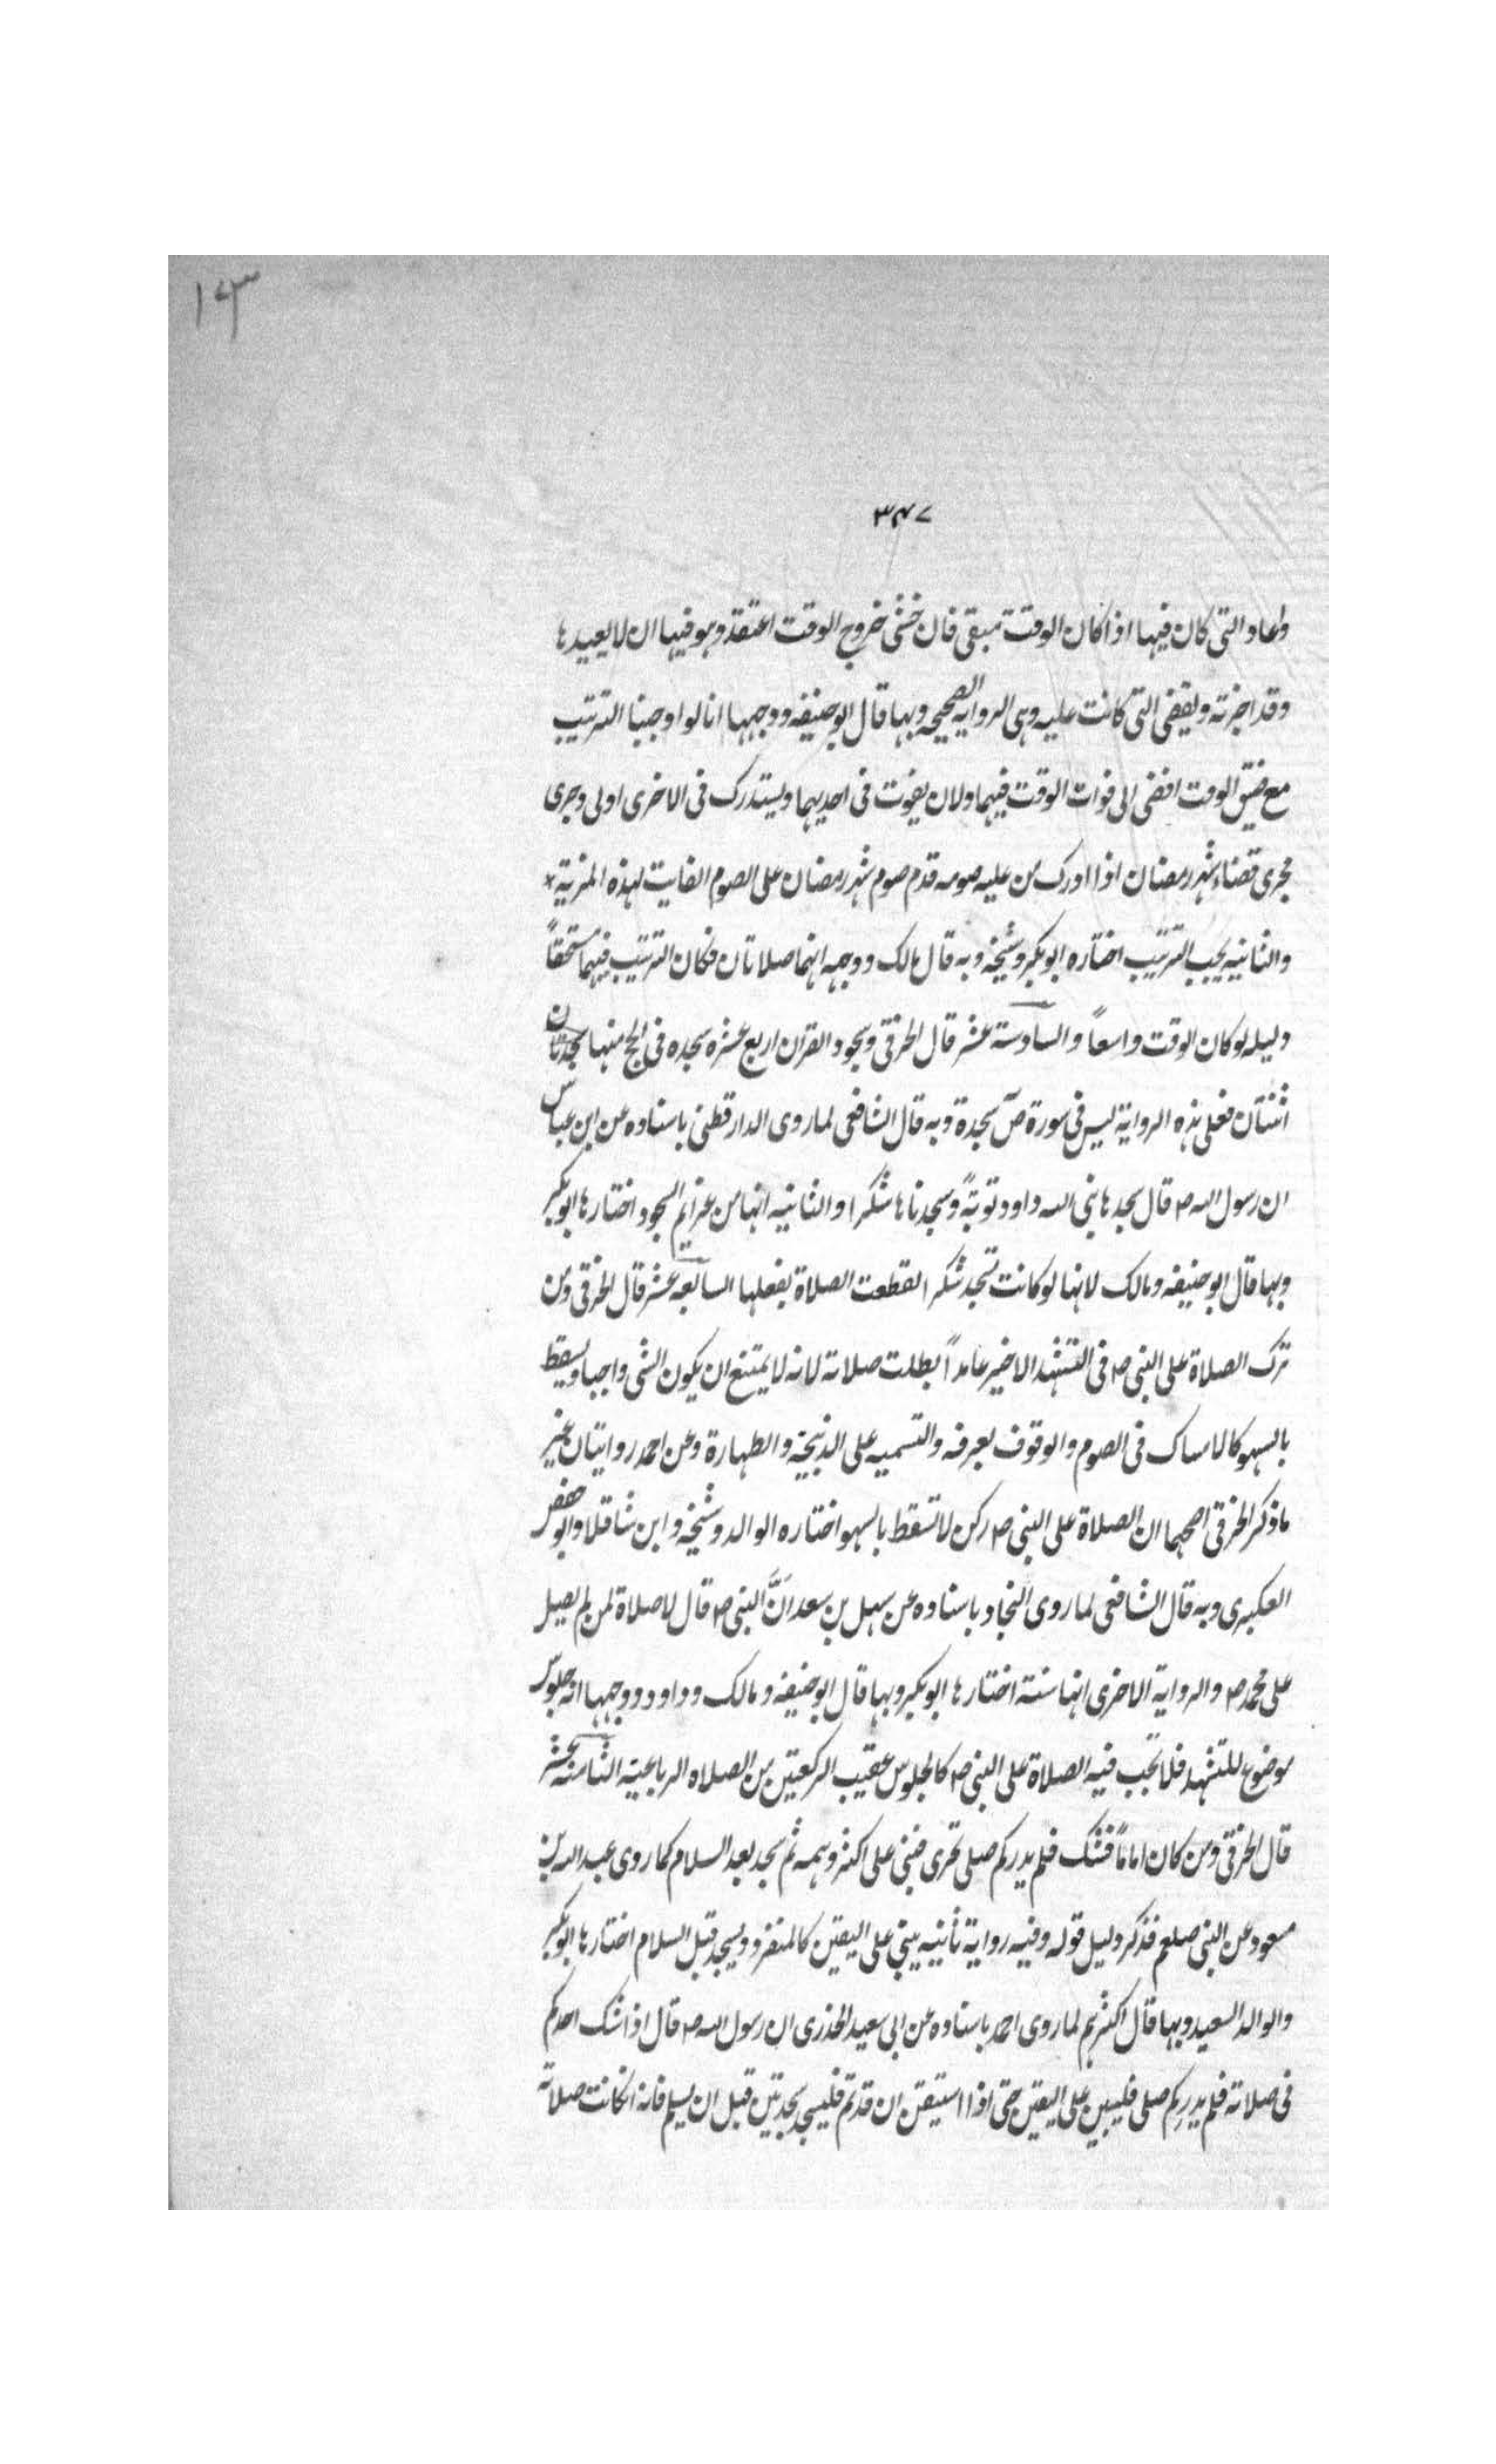 ١٤٣
٣٤٧
واعاد التى كان فيها اذا كان الوقت مبقى فان خشى خروج الوقت اعتقد وهو فيها ان لا يعيدها
وقد اجزته ويقضى التى كانت عليه وهى الرواية الصحيحه وبها قال ابو حنيفه ووجهها انا لو اوجبنا الترتيب
مع ضيق الوقت افضى الى فوات الوقت فيهما ولان يفوت فى احديهما ويستدرك فى الاخرى اولى وجرى
مجرى قضاء شهر رمضان اذا ادرك من عليه صومه قدم صوم شهر رمضان على الصوم الفايت لهذه المزية
والثانيه يجب الترتيب اختاره ابو بكر وشيخه وبه قال مالك ووجهه انهما صلاتان فكان الترتيب فيهما مستحقاً
دليله لو كان الوقت واسعاً والسادسة عشر قال الخرقى وسجود القران اربع عشره سجده فى الحج منها سجدتان
اثنتان فعلى هذه الرواية ليس فى سورة صٓ سجدة وبه قال الشافعى لما روى الدارقطنى باسناده عن ابن عباس
ان رسول الله ص قال سجدها نبى الله داود توبةً وسجدناها شكرا والثانيه انها من عزايم السجود اختارها ابو بكر
وبها قال ابو حنيفه ومالك لانها لو كانت تسجد شكر القطعت الصلاة بفعلها السابعه عشر قال الخرقى ومن
ترك الصلاة على النبى ص فى التشهد الاخير عامداً بطلت صلاته لانه لا يمتنع ان يكون الشى واجبا ويسقط
بالسهو كالامساك فى الصوم والوقوف بعرفه والتسميه على الذبيحة والطهارة وعن احمد روايتان غير
ما ذكر الخرقى اصحهما ان الصلاة على النبى ص ركن لا تسقط بالسهو اختاره الوالد وشيخه وابن شاقلا وابو حفص
العكبرى وبه قال الشافعى لما روى النجاد باسناده عن سهل بن سعد انَّ النبى ص قال لا صلاة لمن لم يصل
على محمد ص والرواية الاخرى انها سنة اختارها ابو بكر وبها قال ابو حنيفه ومالك وداود ووجهها انه جلوس
موضوع للتشهد فلا تجب فيه الصلاة على النبى ص كالجلوس عقيب الركعتين من الصلاه الرباعية الثامنه عشر
قال الخرقى ومن كان اماماً فشك فلم يدر كم صلى تحرى فبنى على اكثر وهمه ثم سجد بعد السلام كما روى عبد الله بن
مسعود عن النبى صلعم فذكر دليل قوله وفيه رواية ثانيه يبنى على اليقين كالمنفرد ويسجد قبل السلام اختارها ابو بكر
والوالد السعيد وبها قال اكثرهم لما روى احمد باسناده عن ابى سعيد الخدرى ان رسول الله ص قال اذا شك احدكم
فى صلاته فلم يدر كم صلى فليبن على اليقين حتى اذا استيقن ان قد تم فليسجد سجدتين قبل ان يسلم فانه ان كانت صلاته